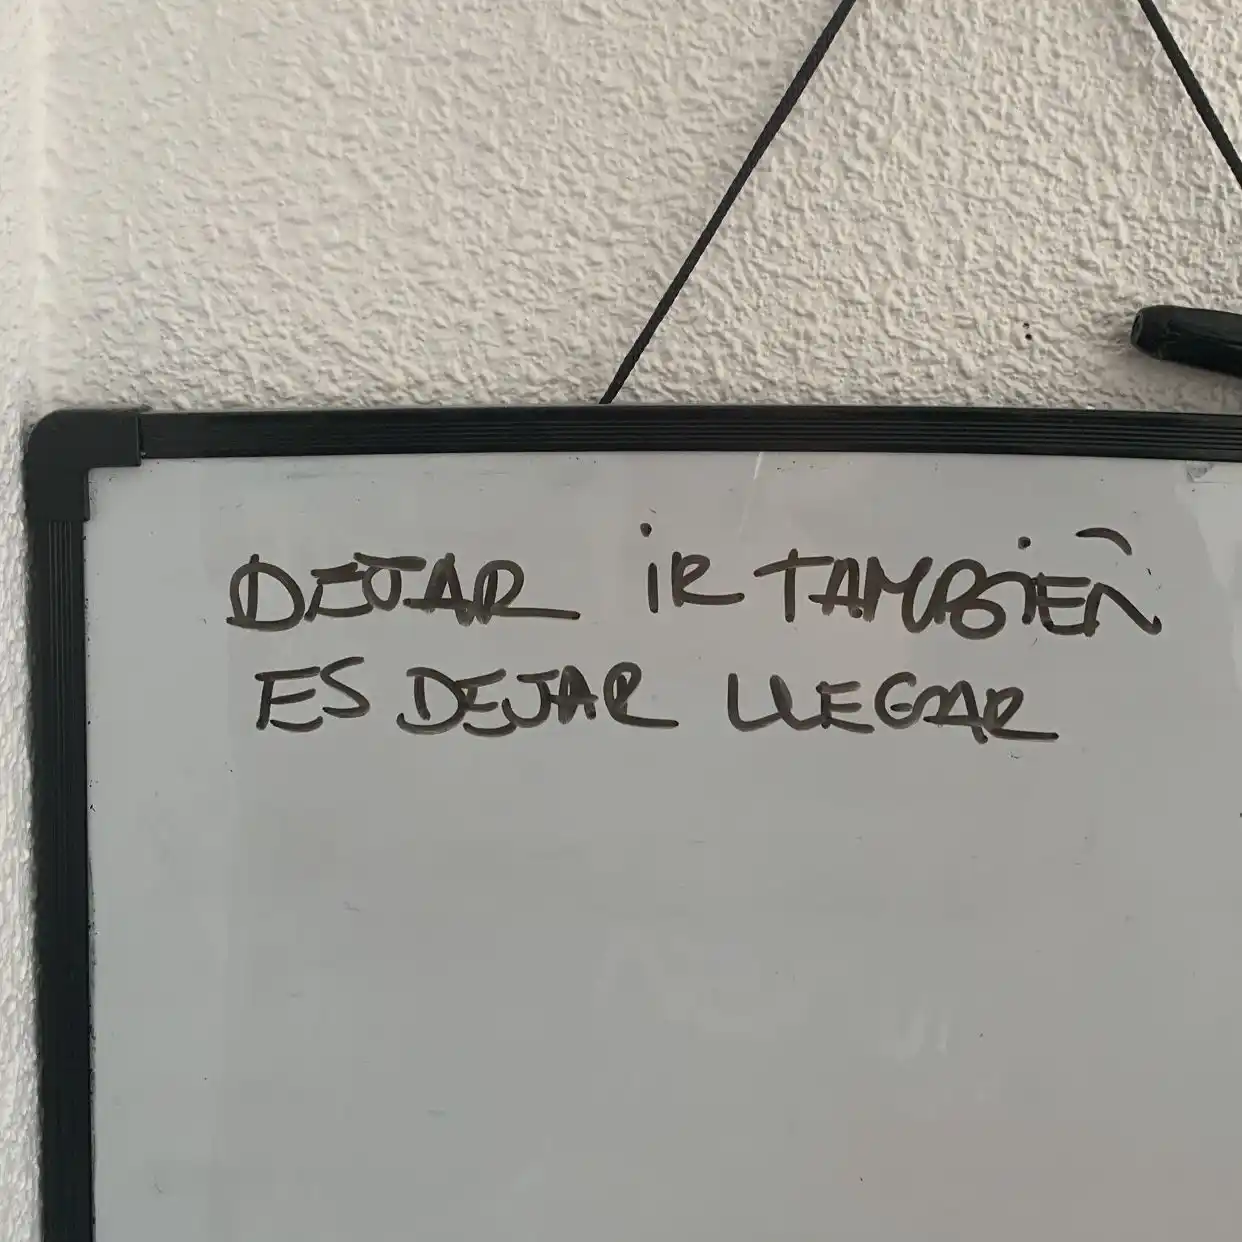 DEJAR iR TAMBiÉN
ES DEJAR LLEGAR